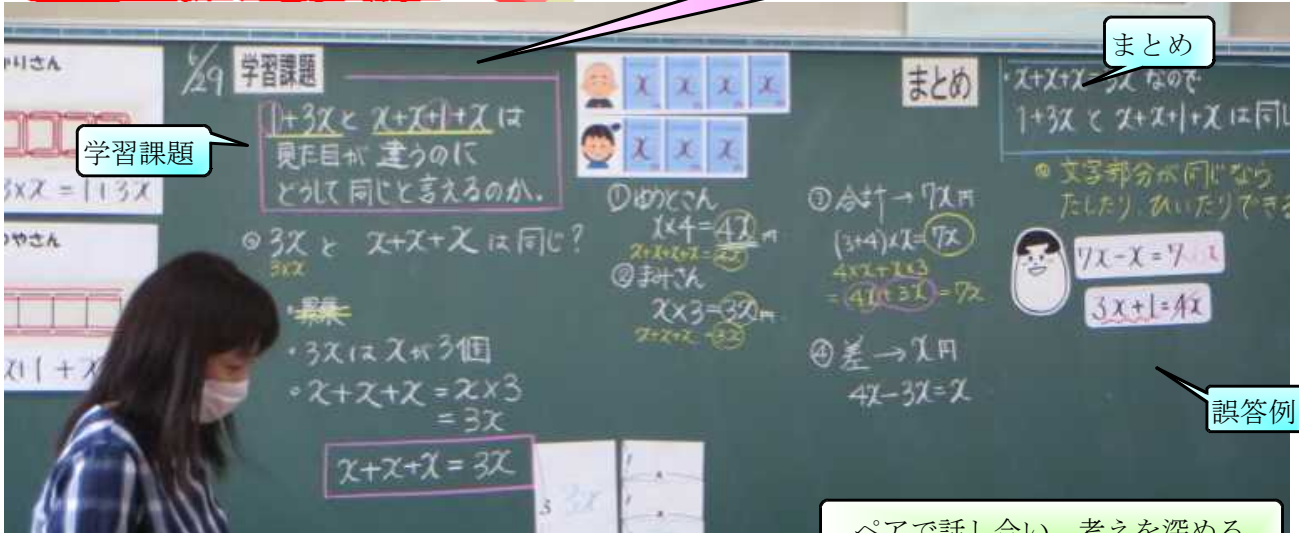 かりさん
3×x = 1+3x
やさん
x+1+x
6/29
学習課題
学習課題
1+3xと x+x+1+xは
見た目が 違うのに
どうして 同じと言えるのか。
◎ 3x と x+x+x は同じ?
3×x
・3xは xが3個
・x+x+x = x×3
= 3x
x+x+x = 3x
x x x x
x x x
①ゆうとさん
x×4=4x 円
x+x+x+x=4x
②まみさん
x×3=3x 円
x+x+x=3x
③合計→7x円
(3+4)×x=7x
4×x+x×3
=4x+3x=7x
④差→x円
4x-3x=x
まとめ
まとめ
・x+x+x=3x なので
1+3x と x+x+1+x は同じ
◎文字部分が同じなら
たしたり、ひいたりできる
7x-x=7
3x+1=4x
誤答例
ペアで話し合い、考えを深める